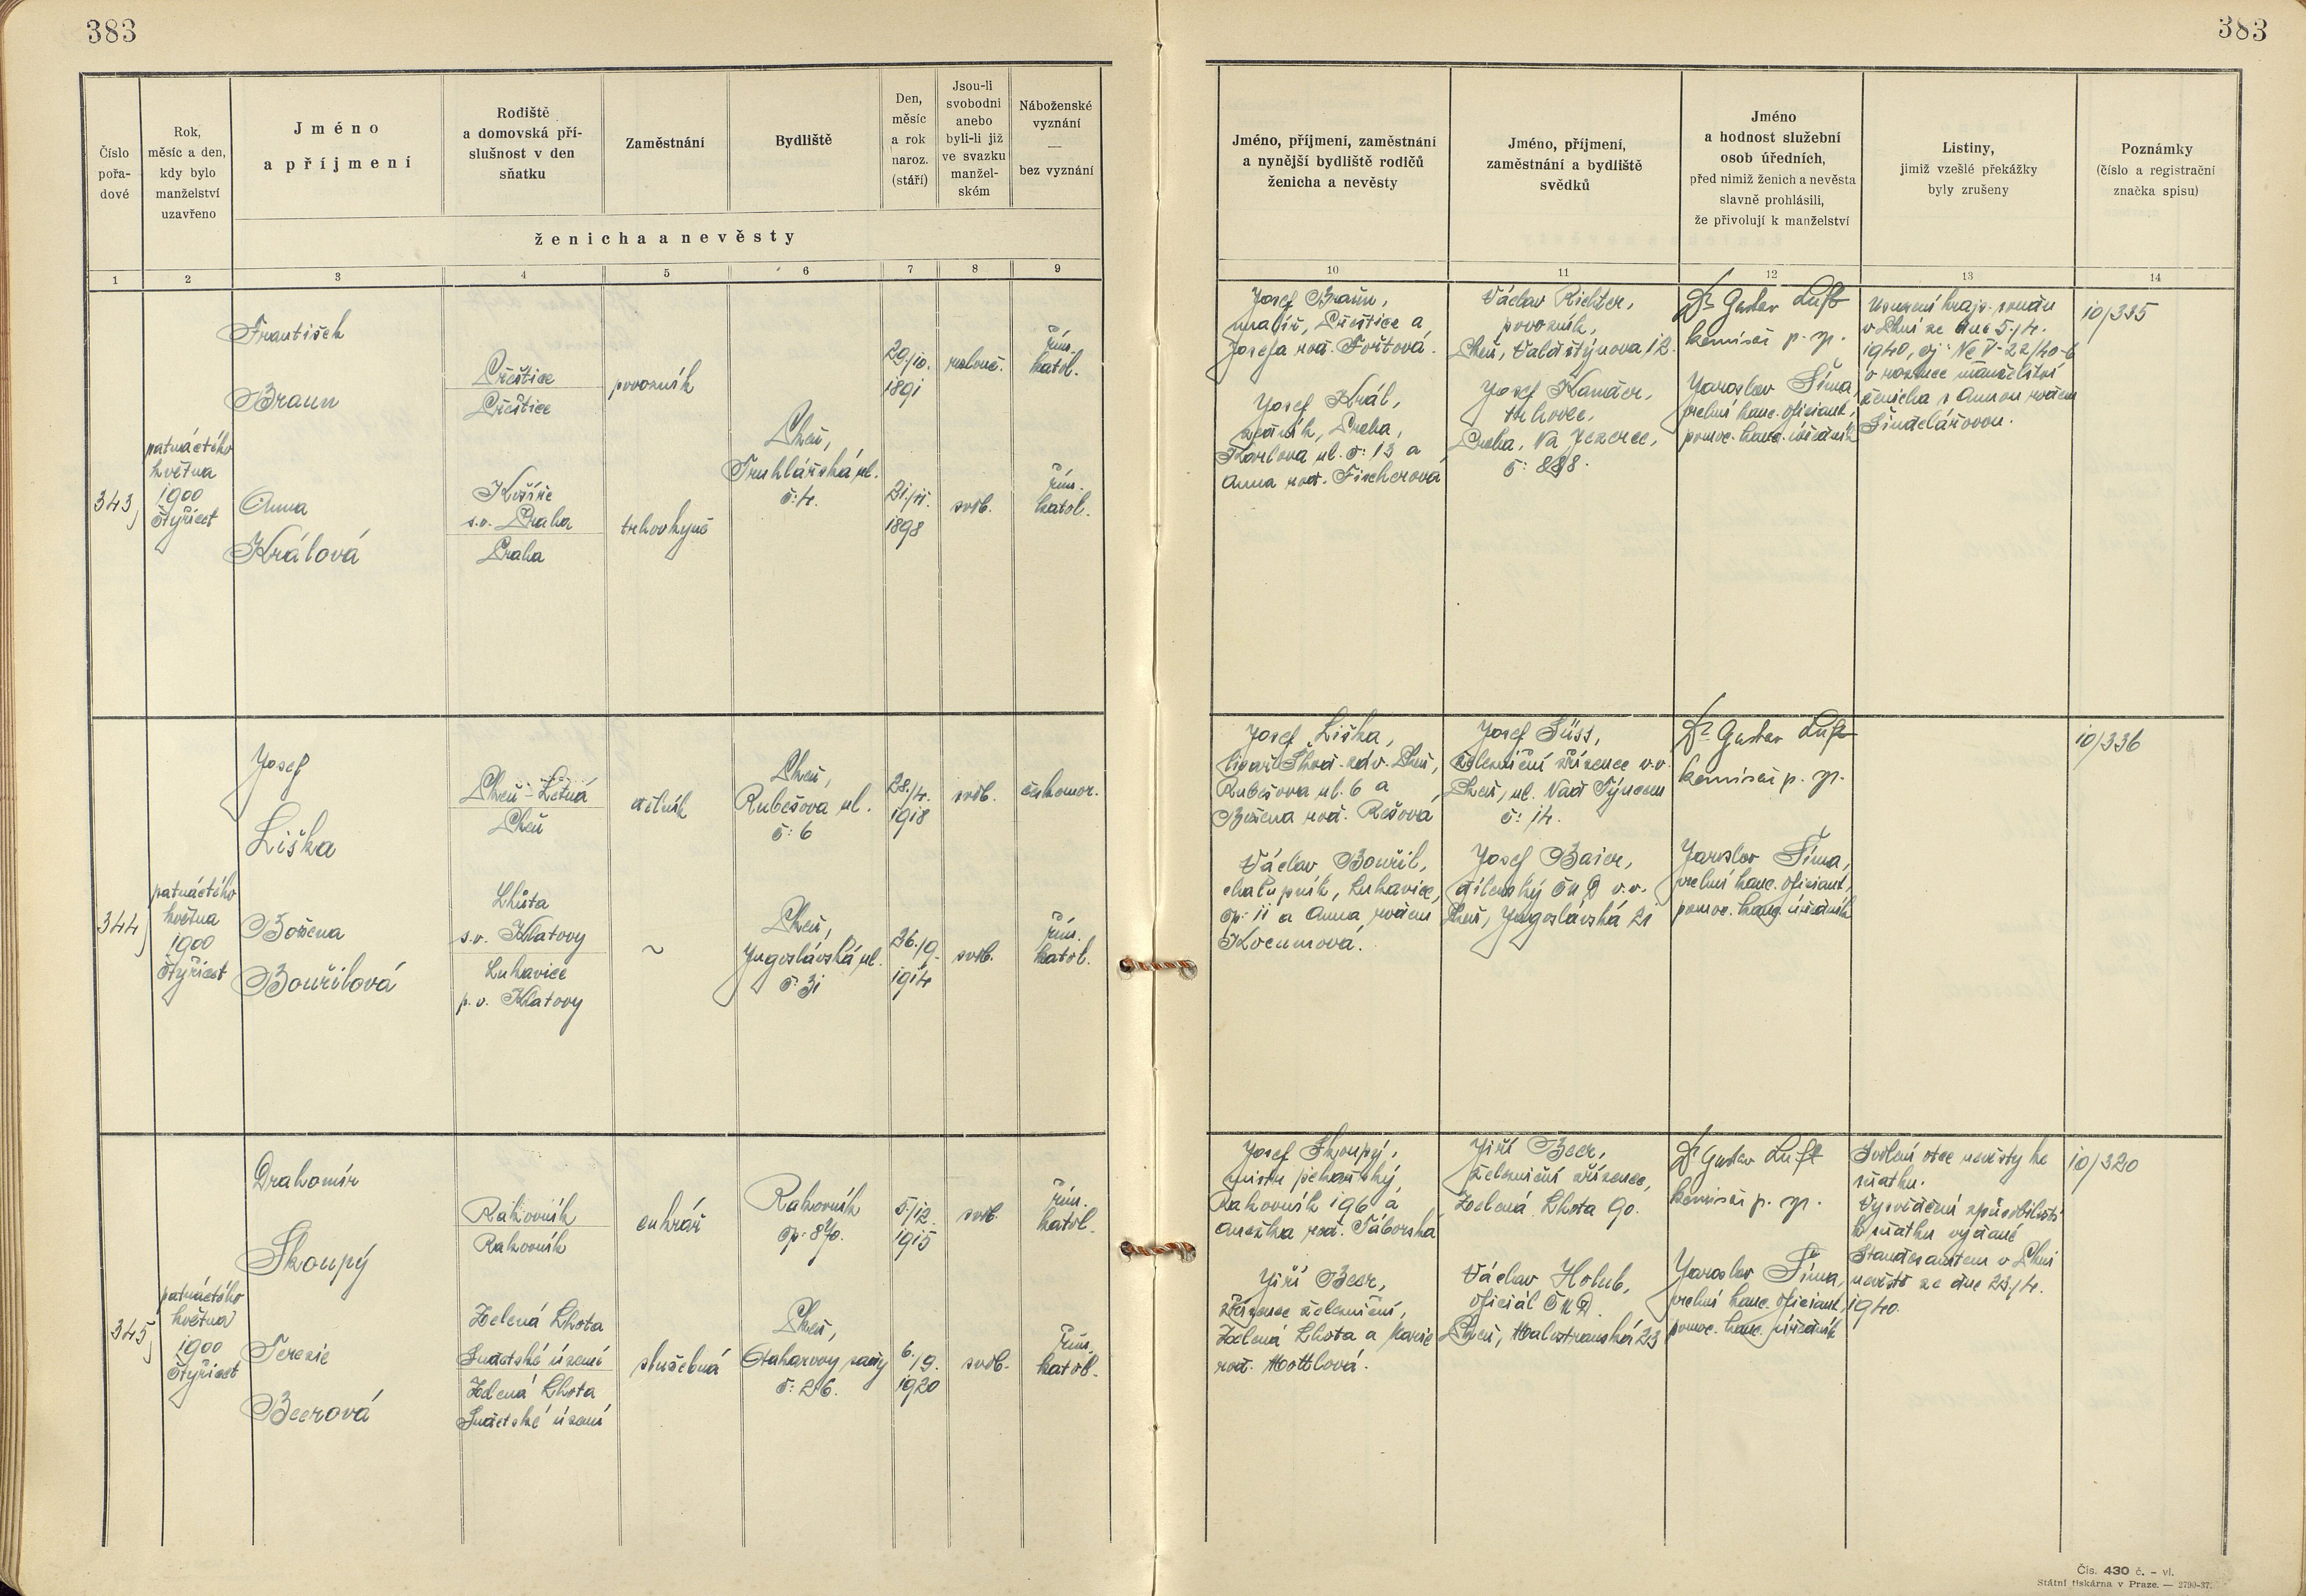 383
383
Číslo
pořa-
dové
Rok,
měsíc a den,
kdy bylo
manželství
uzavřeno
Jméno
a příjmení
Rodiště
a domovská pří-
slušnost v den
sňatku
Zaměstnání
Bydliště
Den,
měsíc
a rok
naroz.
(stáří)
Jsou-li
svobodni
anebo
byli-li již
ve svazku
manžel-
ském
Náboženské
vyznání
—
bez vyznání
ženicha a nevěsty
Jméno, příjmení, zaměstnání
a nynější bydliště rodičů
ženicha a nevěsty
Jméno, příjmení,
zaměstnání a bydliště
svědků
Jméno
a hodnost služební
osob úředních,
před nimiž ženich a nevěsta
slavně prohlásili,
že přivolují k manželství
Listiny,
jimiž vzešlé překážky
byly zrušeny
Poznámky
(číslo a registrační
značka spisu)
1 2 3 4 5 6 7 8 9 10 11 12 13 14
343
patnáctého
května
1900
čtyřicet
František
Braun
Přeštice
Přeštice
povozník
Plzeň,
Truhlářská ul.
č: 4.
29./10.
1891
rozlouč.
řím.
katol.
Anna
Králová
Košíře
s.o. Praha
Praha
trhovkyně
21./11.
1898
svob.
řím.
katol.
Josef Braun,
malíř, Přeštice a
Josefa roz. Fořtová.
Josef Král,
zedník, Praha,
Karlova ul. č: 13 a
Anna roz. Fischerová
Václav Richter,
povozník,
Plzeň, Valdštýnova 12.
Josef Kamder,
trhovec,
Praha, Na Jezerce,
č: 888.
Dr Gustav Luft
komisař p. sp.
Jaroslav Šíma,
vrchní kanc. oficiant,
pomoc. kanc. úředník
Usnesení krajs. soudu
v Plzni ze dne 5./4.
1940, čj: Nc V-22/40-6
o rozluce manželství
ženicha s Annou rozen
Šindelářovou.
10/335
344
patnáctého
května
1900
čtyřicet
Josef
Liška
Plzeň-Letná
Plzeň
dělník
Plzeň,
Rubešova ul.
č: 6
28./4.
1918
svob.
čsl.homor.
Božena
Bouřilová
Lhůta
s.o. Klatovy
Luhavice
p.o. Klatovy
~
Plzeň,
Jugoslávská ul.
č: 31
26./9.
1914
svob.
řím.
katol.
Josef Liška,
Škod. záv. Plzeň,
Rubešova ul. 6 a
Božena roz. Rešová
Václav Bouřil,
chalupník, Luhavice,
čp: 11 a Anna rozen
Kocumová.
Josef Süss,
železniční zřízenec v.v.
Plzeň, ul. Nad Týncem
č: 14.
Josef Baier,
dílenský ČMD v.v.
Plzeň, Jugoslávská 21
Dr Gustav Luft
komisař p. sp.
Jaroslav Šíma,
vrchní kanc. oficiant,
pomoc. kanc. úředník
10/336
345
patnáctého
května
1900
čtyřicet
Drahomír
Skoupý
Rakovník
Rakovník
cukrář
Rakovník
čp: 870.
5./12.
1915
svob.
řím.
katol.
Terezie
Beerová
Zelená Lhota
Sudetské území
Zelená Lhota
Sudetské území
služebná
Plzeň,
Otakarovy sady
č: 26.
6./9.
1920
svob.
řím.
katol.
Josef Skoupý,
mistr pekařský,
Rakovník 196 a
Anežka roz. Táborská
Jiří Beer,
zřízenec železniční,
Zelená Lhota a Marie
roz. Mottlová.
Jiří Beer,
železniční zřízenec,
Zelená Lhota 90.
Václav Holub,
oficiál ČMD.
Plzeň, Malostranská 23
Dr Gustav Luft
komisař p. sp.
Jaroslav Šíma,
vrchní kanc. oficiant,
pomoc. kanc. úředník
Svolení otce nevěsty ke
sňatku.
Vysvědčení způsobilosti
k sňatku vydané
Standesamtem v Plzni
nevěstě ze dne 23./4.
1940.
10/320
Čís. 430 č. – vl.
Státní tiskárna v Praze. — 2790-37.